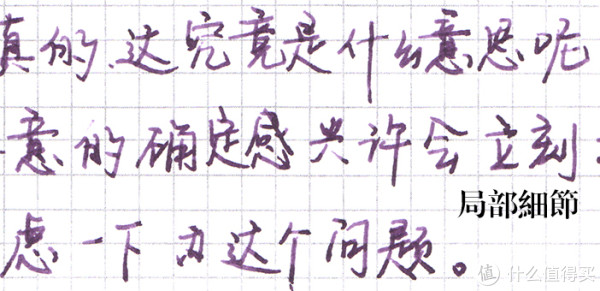 真的,这究竟是什么意思呢
意的确定感兴许会立刻
局部細節
虑一下这个问题。
值 什么值得买